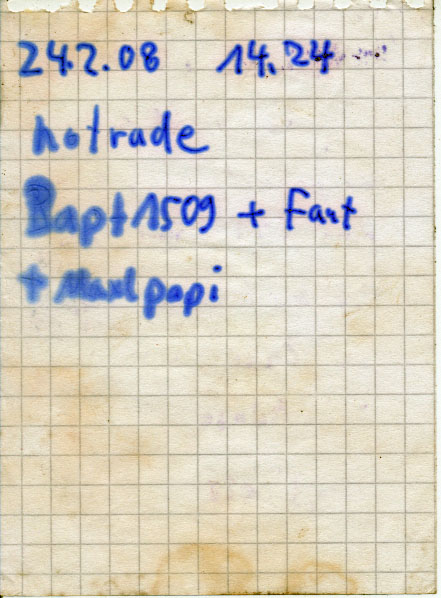 24.2.08 14.24
hotrade
Bapt1509 + Fant
+ Maxlpopi